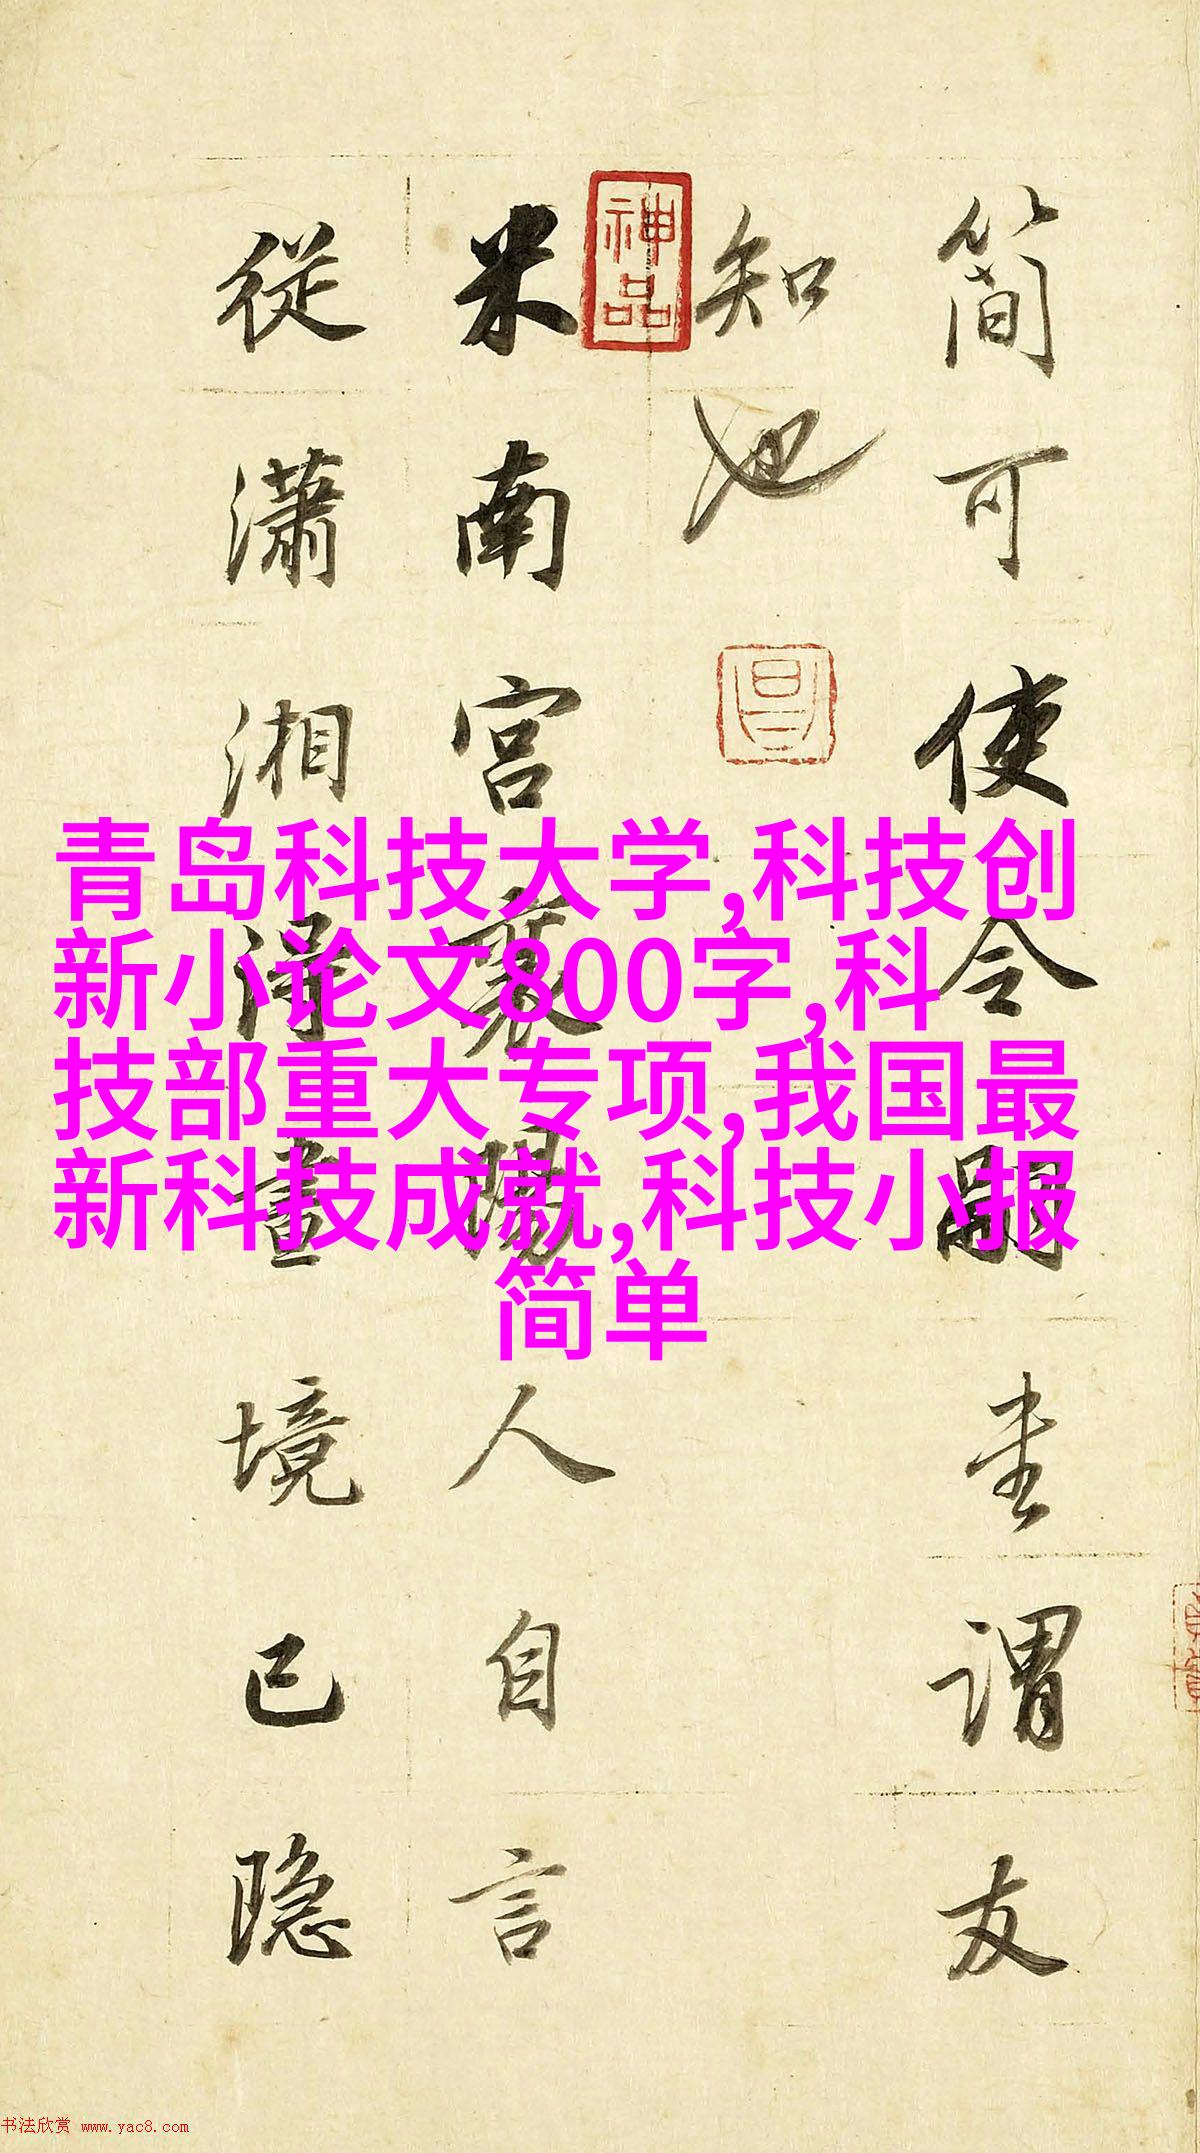 簡可使令嗣圭谓友
知也
米南宮襄陽人自言
從瀟湘得畫境已隐
神品
青岛科技大学,科技创
新小论文800字,科
技部重大专项,我国最
新科技成就,科技小报
简单
书法欣赏 www.yac8.com